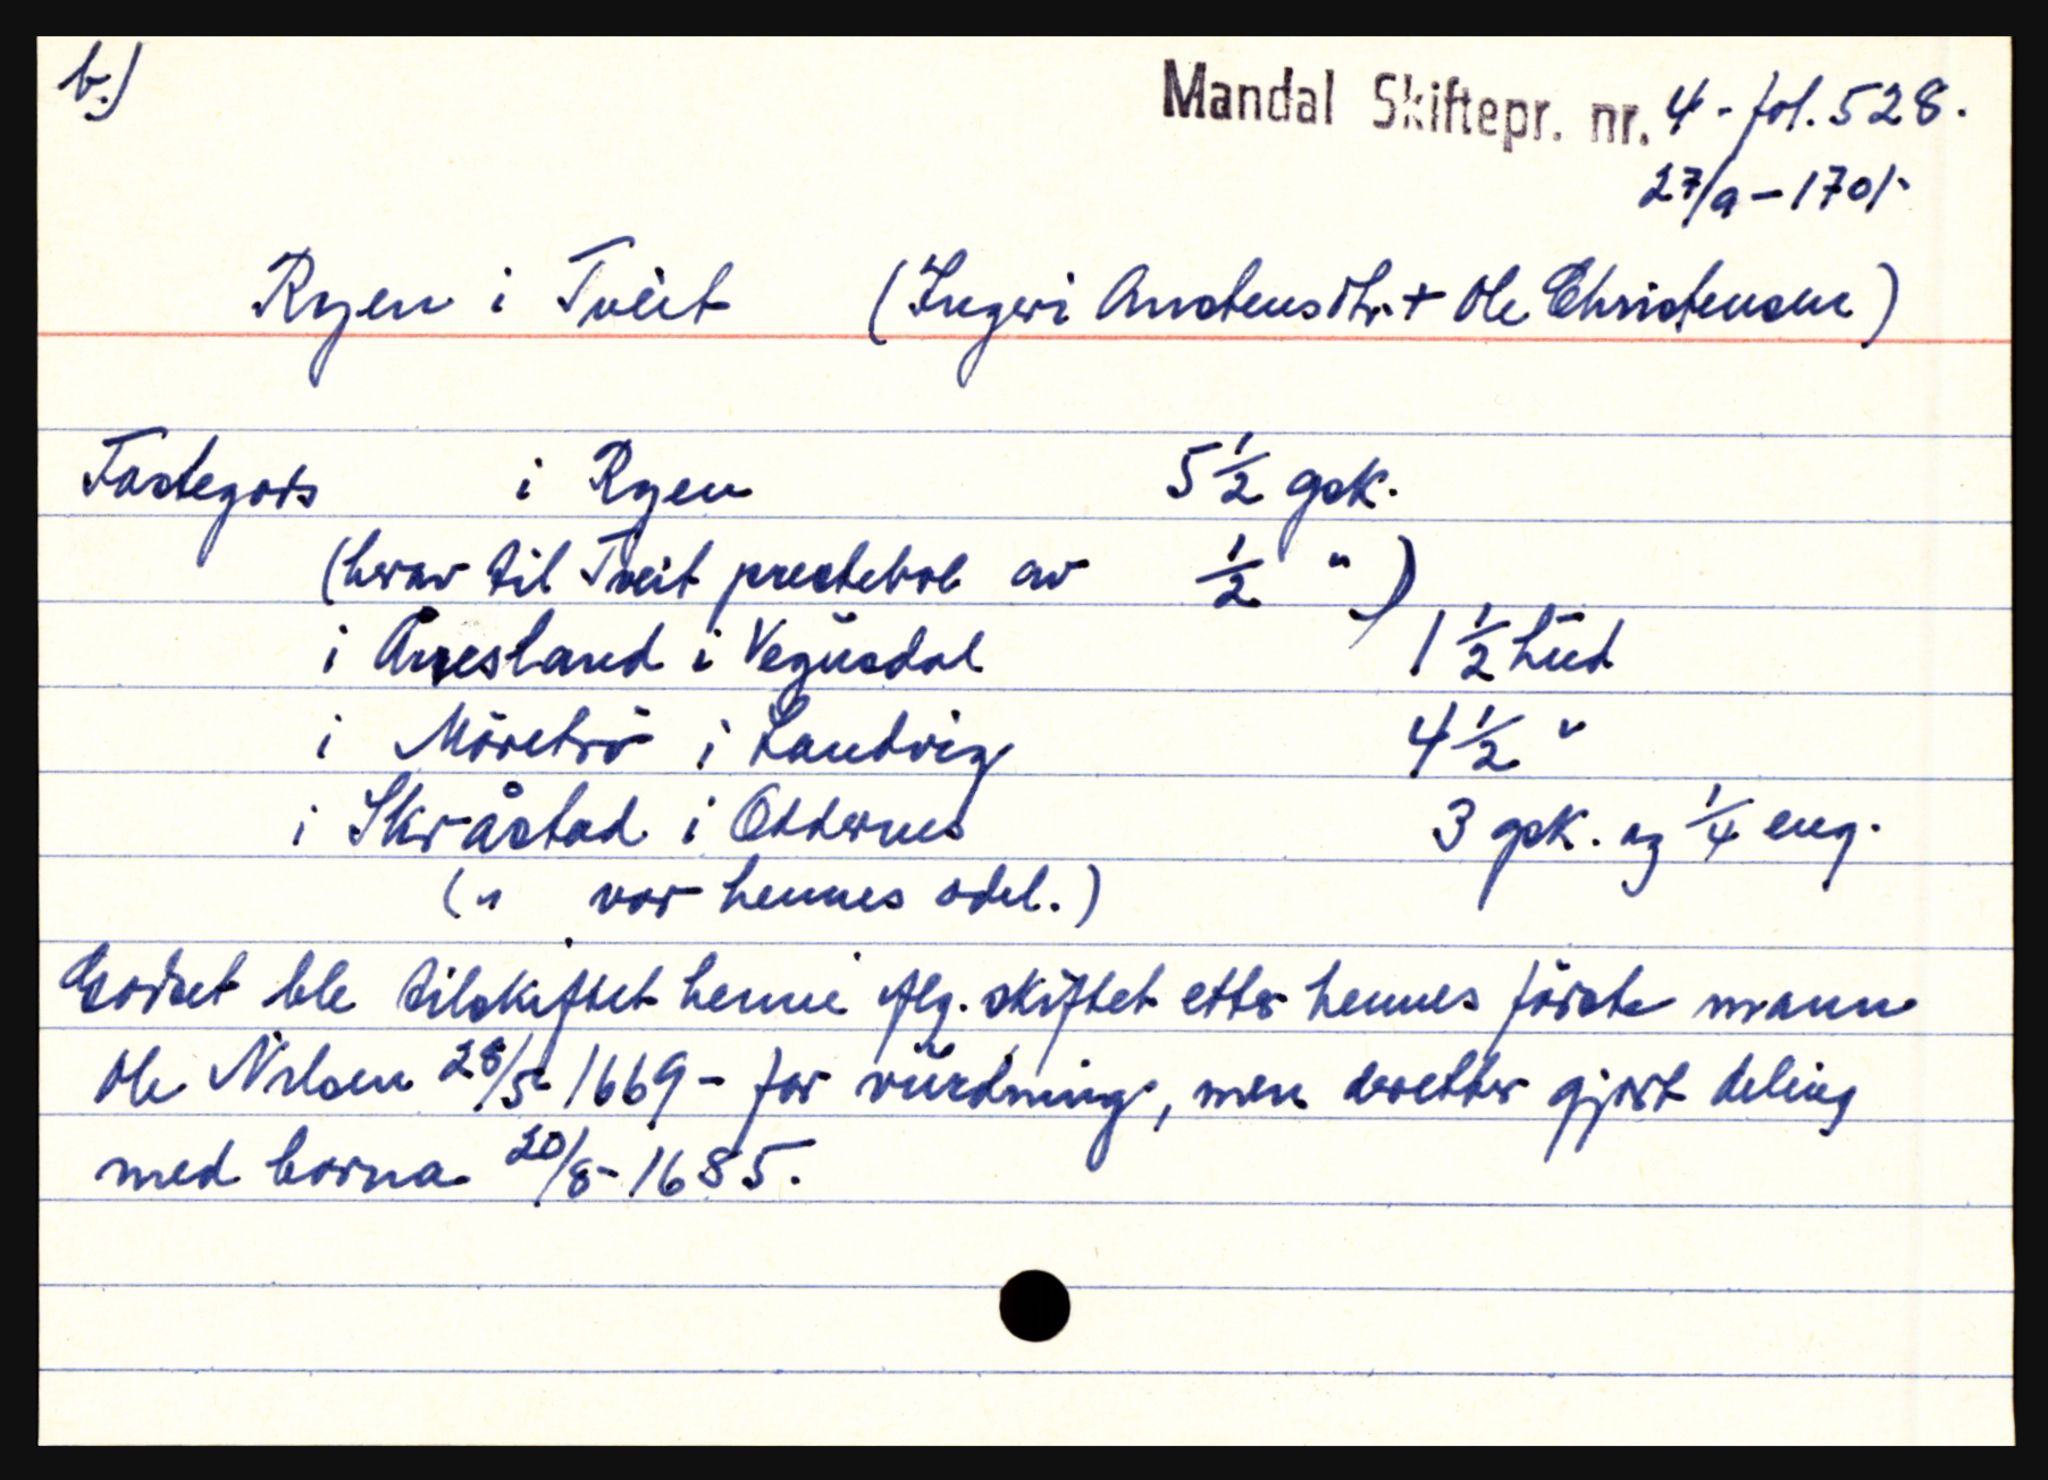 b.)
Mandal Skiftepr. nr. 4 - fol. 528.
27/9 - 1701
Ryen i Tveit (Ingeri Anstensdtr. + Ole Christensen)
Fastegods i Ryen 5 1/2 gsk.
(herav til Tveit prestebol av 1/2 ")
i Ånesland i Vegusdal 1 1/2 hud
i Möretrö i Landvig 4 1/2 "
i Skråstad i Oddernes 3 gsk. og 1/4 eng.
(" var hennes odel.)
Godset ble tilskiftet henne flg. skiftet etter hennes förste mann
Ole Nilsen 28/5 1669 - for vurdning, men deretter gjort deling
med borna 20/8 - 1685.